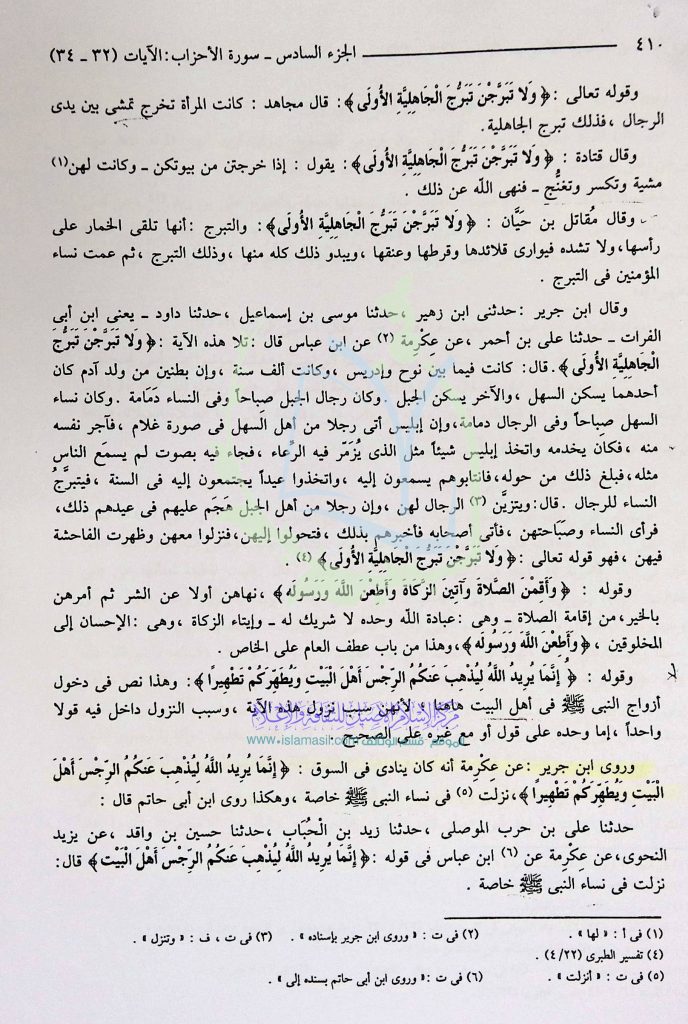 ٤١٠ ــــــــــــ الجزء السادس ـ سورة الأحزاب : الآيات (٣٢ ـ ٣٤)
وقوله تعالى : ﴿ وَلا تَبَرَّجْنَ تَبَرُّجَ الْجَاهِلِيَّةِ الأُولَى ﴾ : قال مجاهد : كانت المرأة تخرج تمشى بين يدى
الرجال ، فذلك تبرج الجاهلية .
وقال قتادة : ﴿ وَلا تَبَرَّجْنَ تَبَرُّجَ الْجَاهِلِيَّةِ الأُولَى ﴾ : يقول : إذا خرجتن من بيوتكن ـ وكانت لهن (١)
مشية وتكسر وتغنُّج ـ فنهى الله عن ذلك .
وقال مُقاتل بن حَيَّان : ﴿ وَلا تَبَرَّجْنَ تَبَرُّجَ الْجَاهِلِيَّةِ الأُولَى ﴾ : والتبرج : أنها تلقى الخمار على
رأسها، ولا تشده فيوارى قلائدها وقرطها وعنقها ، ويبدو ذلك كله منها ، وذلك التبرج ، ثم عمت نساء
المؤمنين فى التبرج .
وقال ابن جرير : حدثنى ابن زهير ، حدثنا موسى بن إسماعيل ، حدثنا داود ـ يعنى ابن أبى
الفرات ـ حدثنا على بن أحمر ، عن عِكْرِمة (٢) عن ابن عباس قال : تلا هذه الآية : ﴿ وَلا تَبَرَّجْنَ تَبَرُّجَ
الْجَاهِلِيَّةِ الأُولَى ﴾ . قال : كانت فيما بين نوح وإدريس ، وكانت ألف سنة ، وإن بطنين من ولد آدم كان
أحدهما يسكن السهل ، والآخر يسكن الجبل . وكان رجال الجبل صِباحاً وفى النساء دَمَامة . وكان نساء
السهل صِباحاً وفى الرجال دمامة، وإن إبليس أتى رجلا من أهل السهل فى صورة غلام ، فآجر نفسه
منه ، فكان يخدمه واتخذ إبليس شيئاً مثل الذى يُزَمّر فيه الرِّعاء ، فجاء فيه بصوت لم يسمَع الناس
مثله، فبلغ ذلك من حوله، فانتابوهم يسمعون إليه ، واتخذوا عيداً يجتمعون إليه فى السنة ، فيتبرَّجُ
النساء للرجال . قال : ويتزيَّن (٣) الرجال لهن ، وإن رجلا من أهل الجبل هَجَم عليهم فى عيدهم ذلك،
فرأى النساء وصبَاحتهن ، فأتى أصحابه فأخبرهم بذلك ، فتحولوا إليهن، فنزلوا معهن وظهرت الفاحشة
فيهن ، فهو قوله تعالى : ﴿ وَلا تَبَرَّجْنَ تَبَرُّجَ الْجَاهِلِيَّةِ الأُولَى ﴾ (٤) .
وقوله : ﴿ وَأَقِمْنَ الصَّلاةَ وَآتِينَ الزَّكَاةَ وَأَطِعْنَ اللَّهَ وَرَسُولَه ﴾ ، نهاهن أولا عن الشر ثم أمرهن
بالخير، من إقامة الصلاة ـ وهى : عبادة الله وحده لا شريك له ـ وإيتاء الزكاة ، وهى : الإحسان إلى
المخلوقين ، ﴿ وَأَطِعْنَ اللَّهَ وَرَسُولَه ﴾، وهذا من باب عطف العام على الخاص .
وقوله : ﴿ إِنَّمَا يُرِيدُ اللَّهُ لِيُذْهِبَ عَنكُمُ الرِّجْسَ أَهْلَ الْبَيْتِ وَيُطَهِّرَكُمْ تَطْهِيرًا ﴾ : وهذا نص فى دخول
أزواج النبى ﷺ فى أهل البيت هاهنا ؛ لأنهن سبب نزول هذه الآية ، وسبب النزول داخل فيه قولا
واحداً ، إما وحده على قول أو مع غيره على الصحيح .
مركز الإسلام الأصيل للثقافة والإعلام
الموقع قسم الوثائق www.islamasil.com
وروى ابن جرير : عن عِكْرِمة أنه كان ينادى فى السوق : ﴿ إِنَّمَا يُرِيدُ اللَّهُ لِيُذْهِبَ عَنكُمُ الرِّجْسَ أَهْلَ
الْبَيْتِ وَيُطَهِّرَكُمْ تَطْهِيرًا ﴾، نزلت (٥) فى نساء النبى ﷺ خاصة ، وهكذا روى ابن أبى حاتم قال :
حدثنا على بن حرب الموصلى ، حدثنا زيد بن الْحُبَاب ، حدثنا حسين بن واقد ، عن يزيد
النحوى، عن عِكْرِمة عن (٦) ابن عباس فى قوله : ﴿ إِنَّمَا يُرِيدُ اللَّهُ لِيُذْهِبَ عَنكُمُ الرِّجْسَ أَهْلَ الْبَيْت ﴾ قال:
نزلت فى نساء النبى ﷺ خاصة .
(١) فى أ : « لها » . (٢) فى ت : « وروى ابن جرير بإسناده » . (٣) فى ت ، ف : « وتنزل » .
(٤) تفسير الطبرى (٤/٢٢) .
(٥) فى ت : « أنزلت » . (٦) فى ت : « وروى ابن أبى حاتم بسنده إلى » .